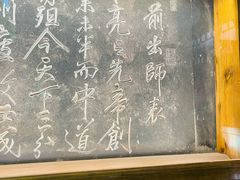 前出師表
亮言先帝創
業未半而中道
殂今天下三分
州疲